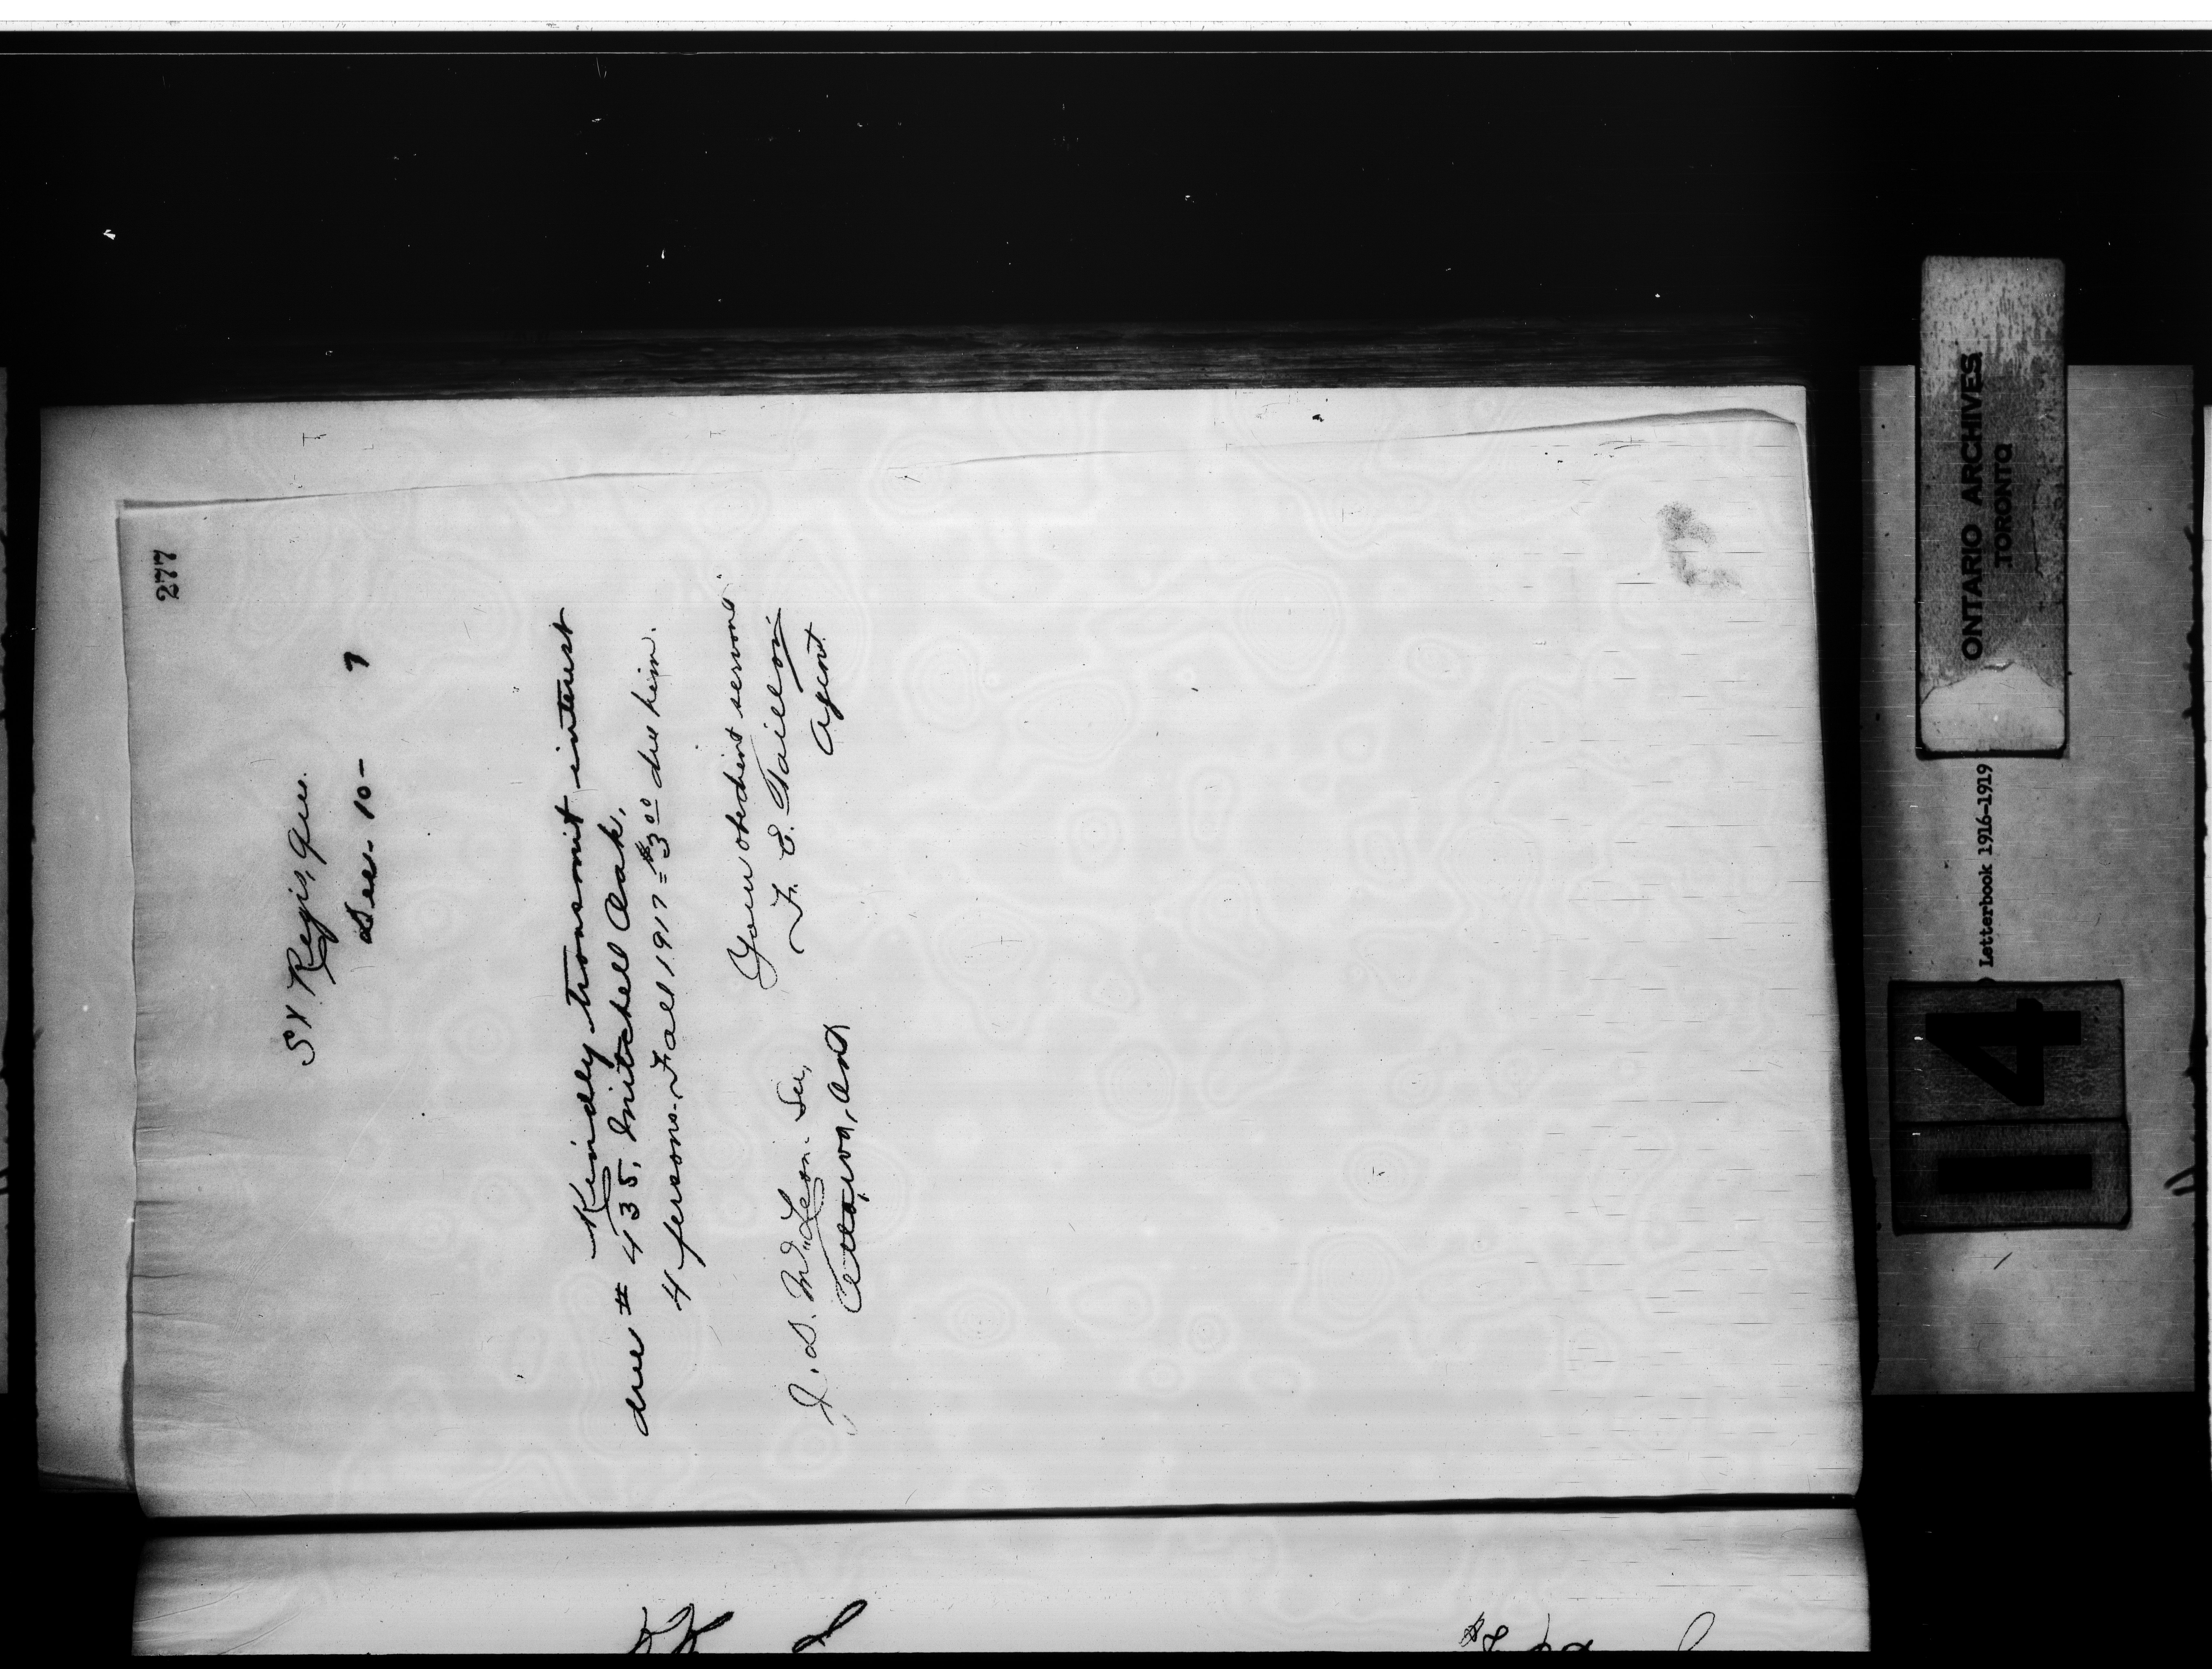 277
St Regis, Que.
Dec. 10- 7
Kindly transmit interest
due # 435, Mitchell Oak,
4 persons. Fall 1917 = $3.00 due him.
Your obedient servant
F. E. Taillon
Agent
J. D. McLean. Sec,
Ottawa, Ont
ONTARIO ARCHIVES
TORONTO
Letterbook 1916-1919
14